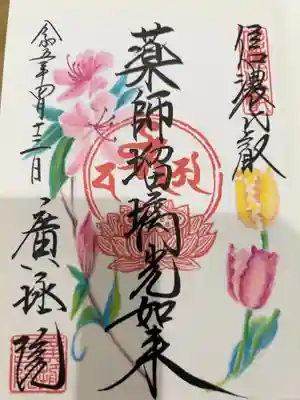 信濃比叡
薬師瑠璃光如来
令和五年四月十二日
廣拯院